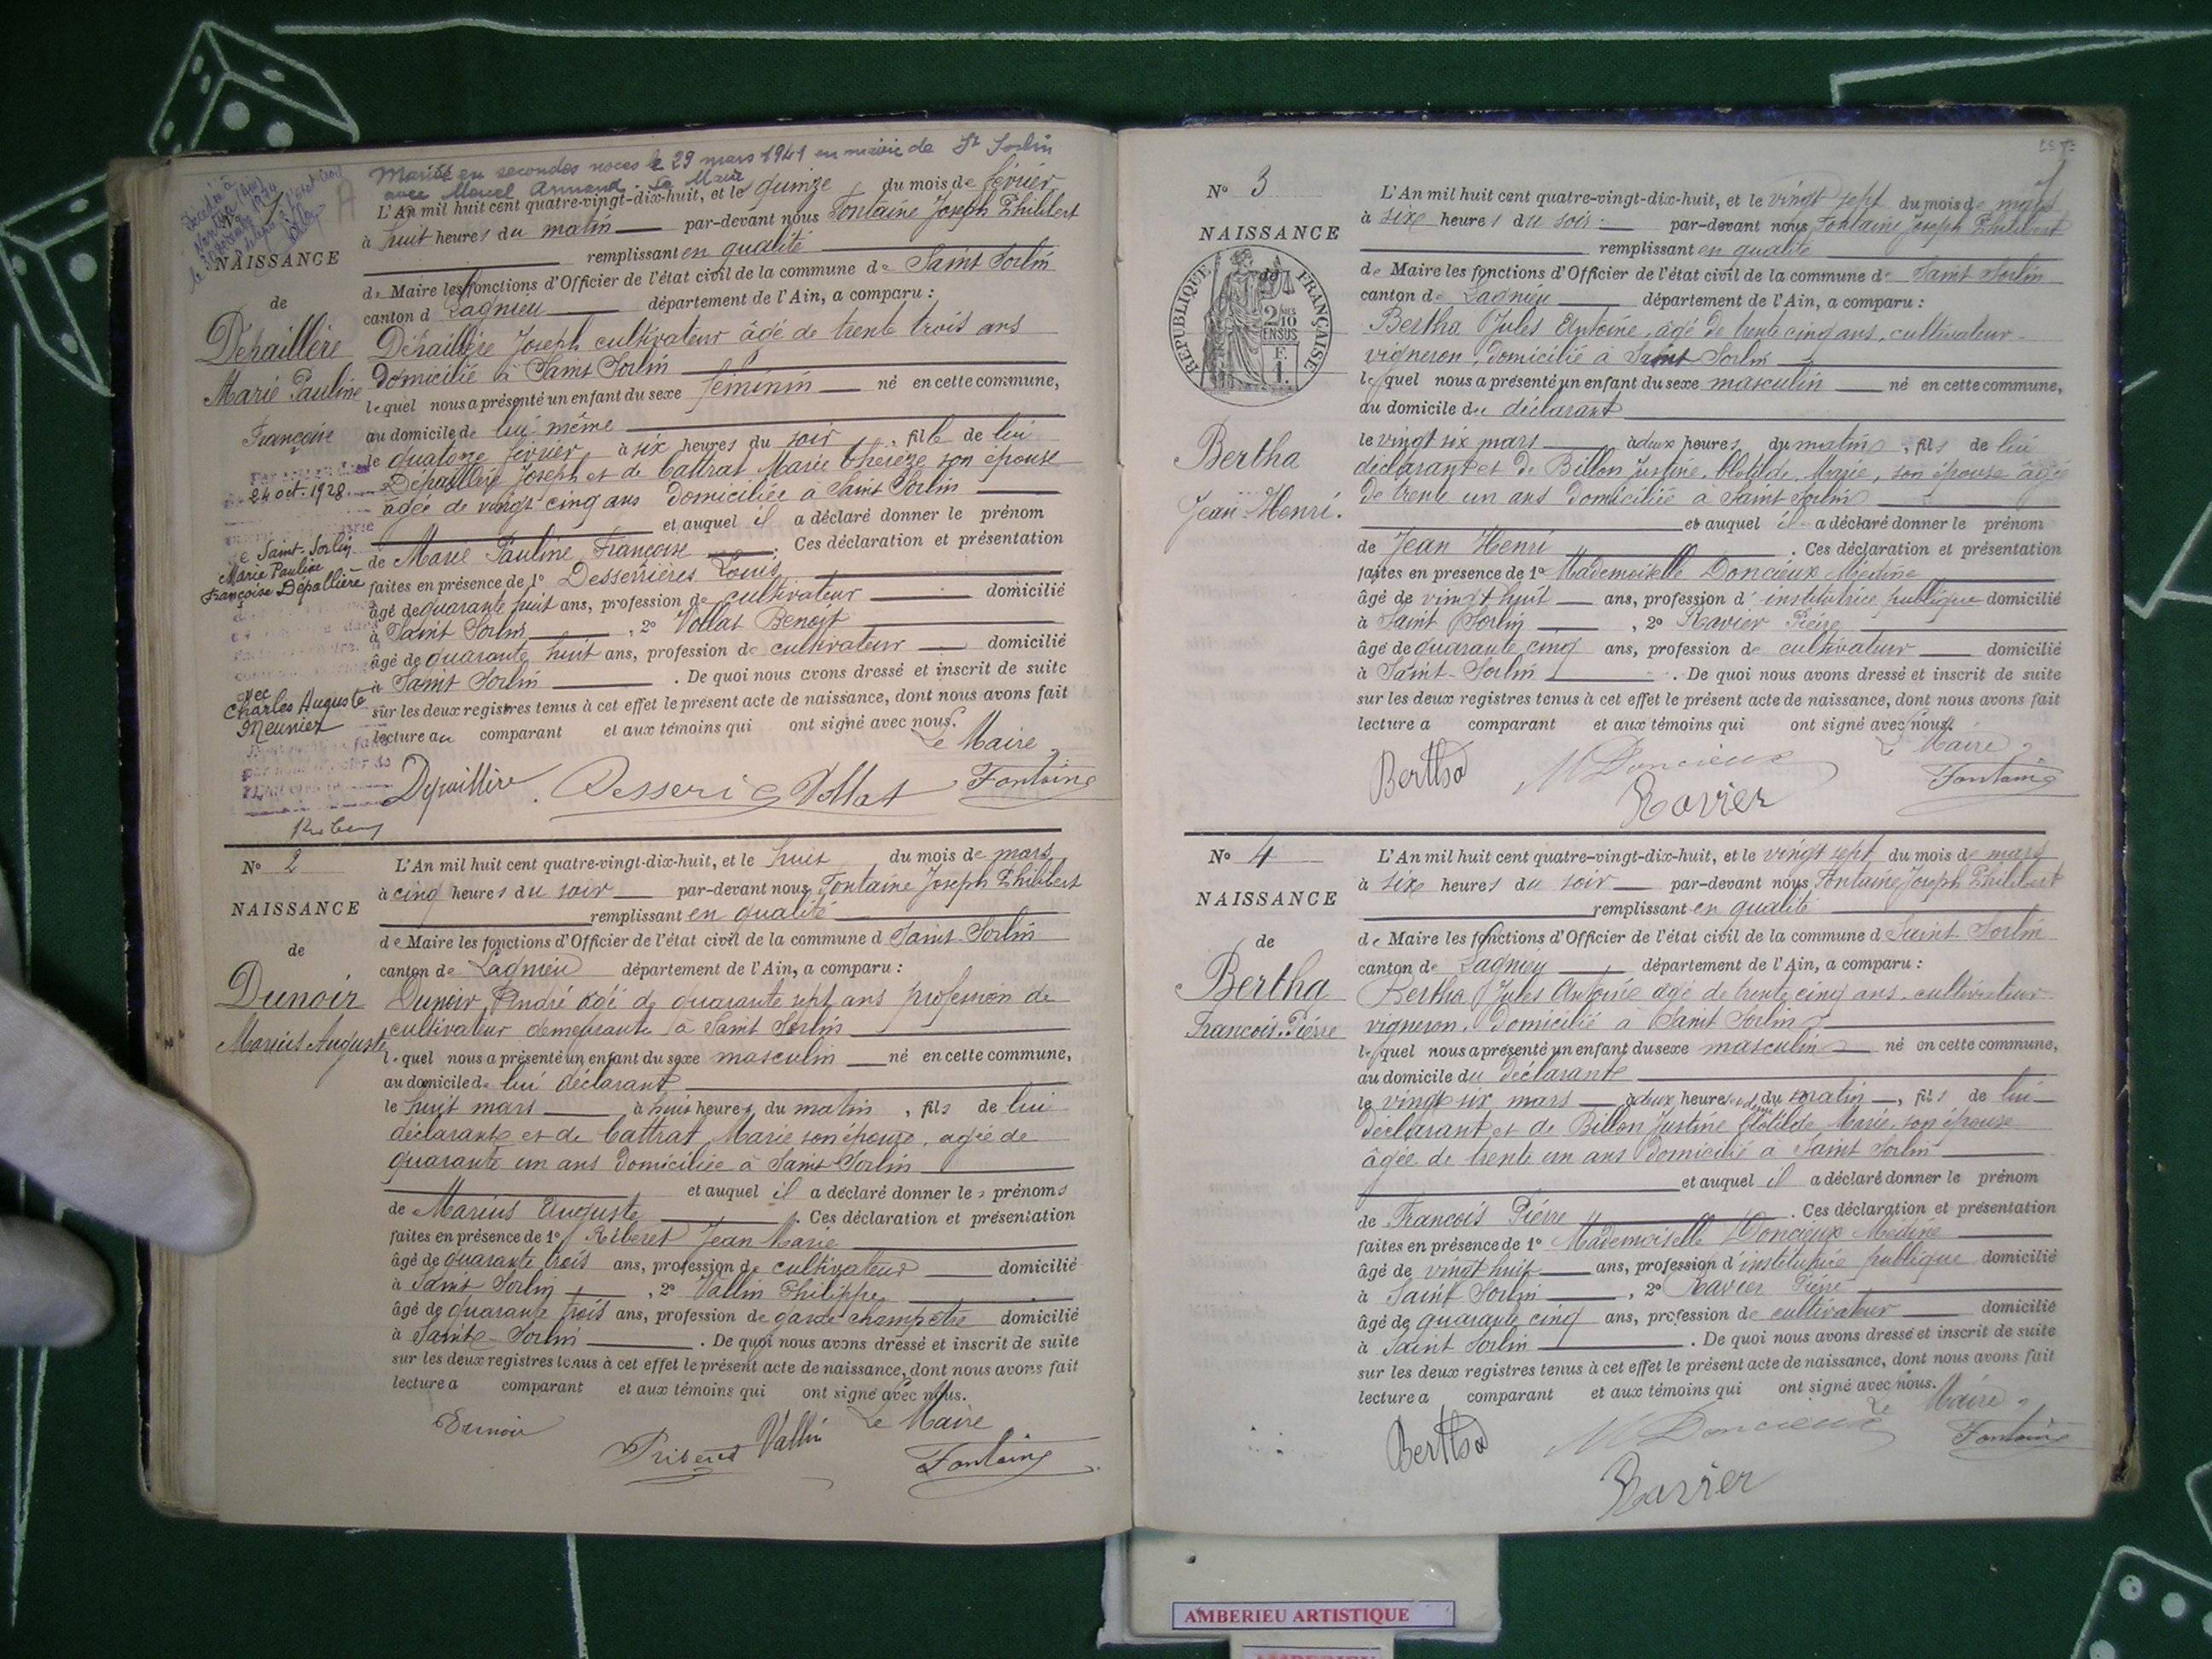 Mariée en secondes noces le 29 mars 1941 en mairie de St Sorlin
avec Marcel Armand. Le Maire
1
NAISSANCE
de
Dépaillière
Marie Pauline
Françoise
24 oct. 1928
e Saint-Sorlin
Marie Pauline
Françoise Dépallière
avec
Charles Auguste
Meunier
L'An mil huit cent quatre-vingt-dix-huit, et le quinze du mois de février
à huit heures du matin par-devant nous Fontaine Joseph Philibert
remplissant en qualité
de Maire les fonctions d'Officier de l'état civil de la commune de Saint Sorlin
canton d Lagnieu département de l'Ain, a comparu :
Dépaillière Joseph cultivateur âgé de trente trois ans
domicilié à Saint Sorlin
lequel nous a présenté un enfant du sexe féminin né en cette commune,
au domicile de lui même
le quatorze février à six heures du soir, fille de lui
Dépaillière Joseph et de Cattrat Marie Thérèze son épouse
agée de vingt cinq ans domiciliée à Saint Sorlin
et auquel il a déclaré donner le prénom
de Marie Pauline Françoise. Ces déclaration et présentation
faites en présence de 1° Desserrières Louis
âgé de quarante huit ans, profession de cultivateur domicilié
à Saint Sorlin, 2° Vollat Benoît
âgé de quarante huit ans, profession de cultivateur domicilié
à Saint Sorlin. De quoi nous avons dressé et inscrit de suite
sur les deux registres tenus à cet effet le présent acte de naissance, dont nous avons fait
lecture au comparant et aux témoins qui ont signé avec nous.
Le Maire
Depaillière Vollat Fontaine
N° 2
NAISSANCE
de
Dunoir
Marius Auguste
L'An mil huit cent quatre-vingt-dix-huit, et le huit du mois de mars
à cinq heures du soir par-devant nous Fontaine Joseph Philibert
remplissant en qualité
de Maire les fonctions d'Officier de l'état civil de la commune d Saint Sorlin
canton de Lagnieu département de l'Ain, a comparu :
Dunoir André agé de quarante sept ans profession de
cultivateur demeurante à Saint Sorlin
lequel nous a présenté un enfant du sexe masculin né en cette commune,
au domicile de lui déclarant
le huit mars à huit heures du matin, fils de lui
déclarante et de Cattrat Marie son épouze, agée de
quarante un ans domiciliée à Saint Sorlin
et auquel il a déclaré donner les prénoms
de Marius Auguste. Ces déclaration et présentation
faites en présence de 1° Riberet Jean Marie
âgé de quarante trois ans, profession de cultivateur domicilié
à Saint Sorlin, 2° Vallin Philippe
âgé de quarante trois ans, profession de garde champêtre domicilié
à Sainte-Sorlin. De quoi nous avons dressé et inscrit de suite
sur les deux registres tenus à cet effet le présent acte de naissance, dont nous avons fait
lecture a comparant et aux témoins qui ont signé avec nous.
Dunoir Vallin Le Maire
Fontaine
N° 3
NAISSANCE
de
RÉPUBLIQUE FRANÇAISE
2/10 EN SUS
F.
1.
Bertha
Jean-Henri.
L'An mil huit cent quatre-vingt-dix-huit, et le vingt sept du mois de mars
à sixe heures du soir par-devant nous Fontaine Joseph Philibert
remplissant en qualité
de Maire les fonctions d'Officier de l'état civil de la commune de Saint Sorlin
canton de Lagnieu département de l'Ain, a comparu :
Bertha Jules Antoine, âgé de trente cinq ans, cultivateur
vigneron, domicilié à Saint Sorlin
lequel nous a présenté un enfant du sexe masculin né en cette commune,
au domicile du déclarant
le vingt six mars à deux heures du matin, fils de lui
déclarant et de Billon Justine, Clotilde Marie, son épouse âgée
de trente un ans domiciliée à Saint Sorlin
et auquel il a déclaré donner le prénom
de Jean Henri. Ces déclaration et présentation
faites en présence de 1° Mademoiselle Doncieux Médine
âgé de vingt huit ans, profession d' institutrice publique domicilié
à Saint Sorlin, 2° Ravier Pierre
âgé de quarante cinq ans, profession de cultivateur domicilié
à Saint-Sorlin. De quoi nous avons dressé et inscrit de suite
sur les deux registres tenus à cet effet le présent acte de naissance, dont nous avons fait
lecture a comparant et aux témoins qui ont signé avec nous.
Le Maire
Bertha M Doncieux Fontaine
Ravier
N° 4
NAISSANCE
de
Bertha
François-Pierre
L'An mil huit cent quatre-vingt-dix-huit, et le vingt sept du mois de mars
à sixe heures du soir par-devant nous Fontaine Joseph Philibert
remplissant en qualité
de Maire les fonctions d'Officier de l'état civil de la commune d Saint Sorlin
canton de Lagnieu département de l'Ain, a comparu :
Bertha Jules Antoine agé de trente cinq ans, cultivateur
vigneron, domicilié à Saint Sorlin
lequel nous a présenté un enfant du sexe masculin né en cette commune,
au domicile du déclarante
le vingt six mars à deux heures et demi du matin, fils de lui
déclarant et de Billon Justine Clotilde Marie, son épouse
âgée de trente un ans domicilié à Saint Sorlin
et auquel il a déclaré donner le prénom
de François Pierre. Ces déclaration et présentation
faites en présence de 1° Mademoiselle Doncieux Médine
âgé de vingt huit ans, profession d'institutrice publique domicilié
à Saint Sorlin, 2° Ravier Pierre
âgé de quarante cinq ans, profession de cultivateur domicilié
à Saint Sorlin. De quoi nous avons dressé et inscrit de suite
sur les deux registres tenus à cet effet le présent acte de naissance, dont nous avons fait
lecture a comparant et aux témoins qui ont signé avec nous.
Le Maire
Bertha M Doncieux Fontaine
Ravier
AMBERIEU ARTISTIQUE